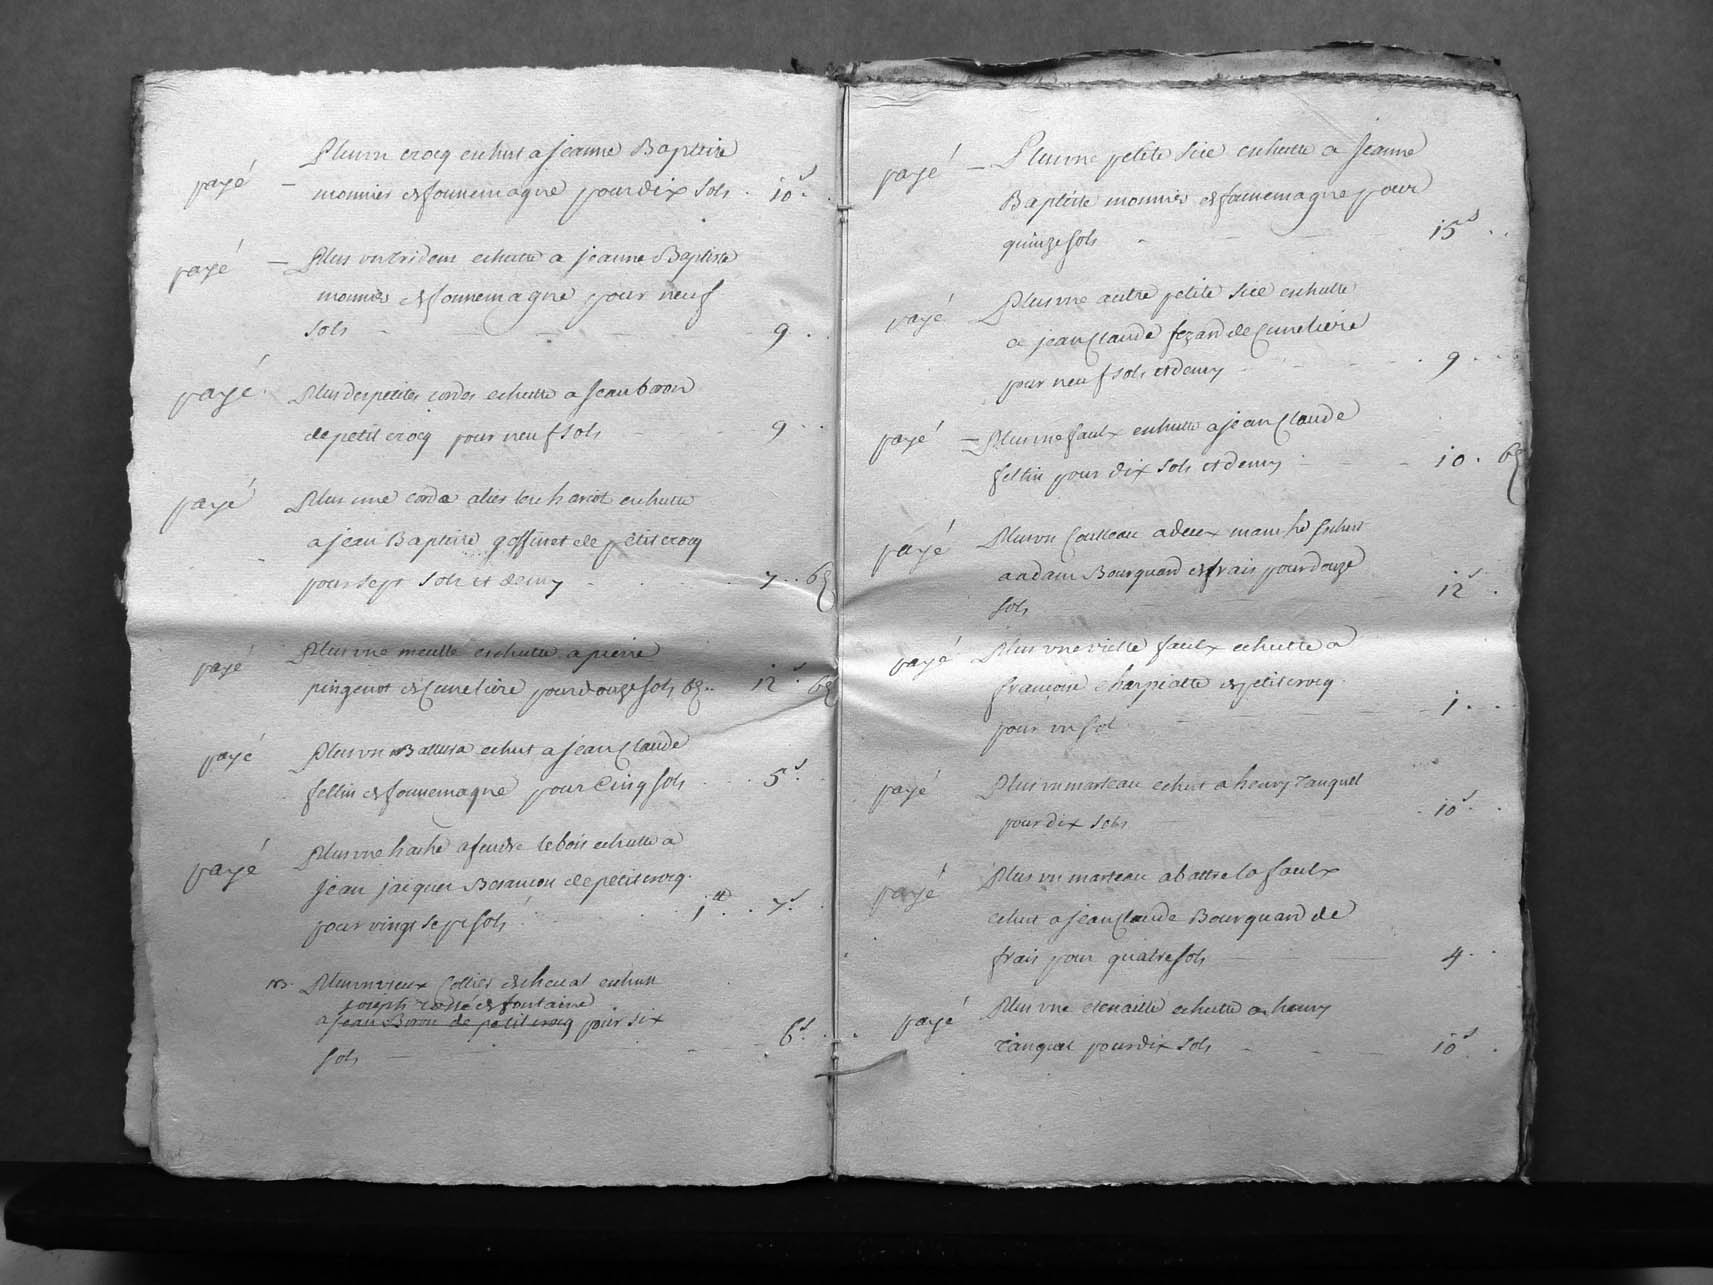 Plus un crocq eschut a Jeanne Baptiste
payé — monnier de fonnemagne pour dix sols . 10 s.
payé — Plus un trident eschutte a jeanne Baptiste
monnier de fonnemagne pour neuf
sols 9 . .
payé Plus des petites cordes eschutte a Jean boron
de petit crocq pour neuf sols 9 . .
payé Plus une corde a lier le chariot eschutte
a jean Baptiste goffinet de petit crocq
pour sept sols et demy 7 . . 6 ₰
payé Plus une meulle eschutte a pierre
pingenot de Cuneliere pour douze sols 6 ₰ . 12 s. 6 ₰
payé Plus un eschut a jean Claude
fellin de fonnemagne pour Cinq sols . . 5 s.
payé Plus une hache a fendre le bois eschutte a
Jean jacques Besancon de petit crocq
pour vingt sept sols 1 ₶ . . 7 s.
Plus un vieux Collier de cheval eschutte
joseph de fontaine
a jean Boron de petit crocq pour six
sols 6 s. .
payé — Plus une petite sie eschutte a Jeanne
Baptiste monnier de fonnemagne pour
quinze sols 15 s . .
payé Plus une autre petite sie eschutte
a jean Claude de Cuneliere
pour neuf sols et demy . 9 . .
payé — Plus une faulx eschutte a jean Claude
fellin pour dix sols et demy 10 . 6 ₰
payé Plus un Coutteau a deux manche Eschut
a adam Bourquard de frais pour douze
sols 12 s .
payé Plus une vielle faulx eschutte a
françoise charpiatte de petit crocq
pour un sol 1 . .
payé Plus un marteau eschut a henry Tanquet
pour dix sols . 10 s. .
payé Plus un marteau a battre la faulx
eschut a jean Claude Bourquard de
frais pour quatre sols 4 . .
payé Plus une etenaille eschutte a henry
Tanquet pour dix sols 10 s. .